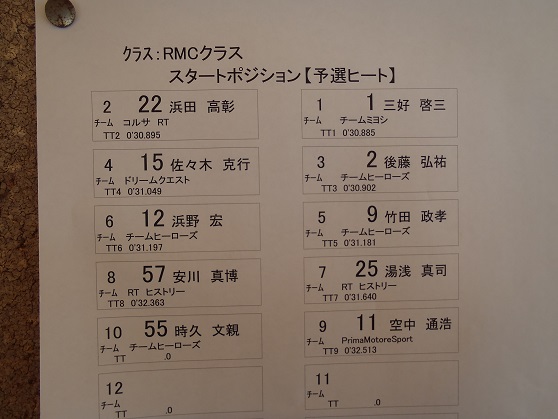 クラス：RMCクラス
スタートポジション【予選ヒート】
2 22 浜田 高彰
チーム コルサ RT
TT2 0'30.895
1 1 三好 啓三
チーム チームミヨシ
TT1 0'30.885
4 15 佐々木 克行
チーム ドリームクエスト
TT4 0'31.049
3 2 後藤 弘祐
チーム チームヒーローズ
TT3 0'30.902
6 12 浜野 宏
チーム チームヒーローズ
TT6 0'31.197
5 9 竹田 政孝
チーム チームヒーローズ
TT5 0'31.181
8 57 安川 真博
チーム RT ヒストリー
TT8 0'32.363
7 25 湯浅 真司
チーム RT ヒストリー
TT7 0'31.640
10 55 時久 文親
チーム チームヒーローズ
TT .0
9 11 空中 通浩
チーム PrimaMotoreSport
TT9 0'32.513
12
チーム
TT .0
11
チーム
TT .0